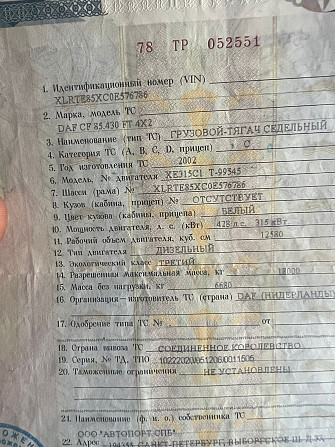 78 ТР 052551
1. Идентификационный номер (VIN)
XLRTE85XC0E576786
2. Марка, модель ТС
DAF CF 85.430 FT 4X2
3. Наименование (тип ТС) ГРУЗОВОЙ-ТЯГАЧ СЕДЕЛЬНЫЙ
4. Категория ТС (А, В, С, D, прицеп) С
5. Год изготовления ТС 2002
6. Модель, № двигателя XE315C1 T-99545
7. Шасси (рама) № XLRTE85XC0E576786
8. Кузов (кабина, прицеп) № ОТСУТСТВУЕТ
9. Цвет кузова (кабины, прицепа) БЕЛЫЙ
10. Мощность двигателя, л. с. (кВт) 428 л.с. 315 кВт
11. Рабочий объем двигателя, куб. см 12580
12. Тип двигателя ДИЗЕЛЬНЫЙ
13. Экологический класс ТРЕТИЙ
14. Разрешенная максимальная масса, кг 18000
15. Масса без нагрузки, кг 6680
16. Организация—изготовитель ТС (страна) DAF (НИДЕРЛАНДЫ)
17. Одобрение типа ТС № от
18. Страна вывоза ТС СОЕДИНЕННОЕ КОРОЛЕВСТВО
19. Серия, № ТД, ТПО
20. Таможенные ограничения НЕ УСТАНОВЛЕНЫ
21. Наименование (ф. и. о.) собственника ТС
ООО "АВТОПОРТ СПБ"
22. Адрес САНКТ-ПЕТЕРБУРГ, ВЫБОРГСКОЕ Ш